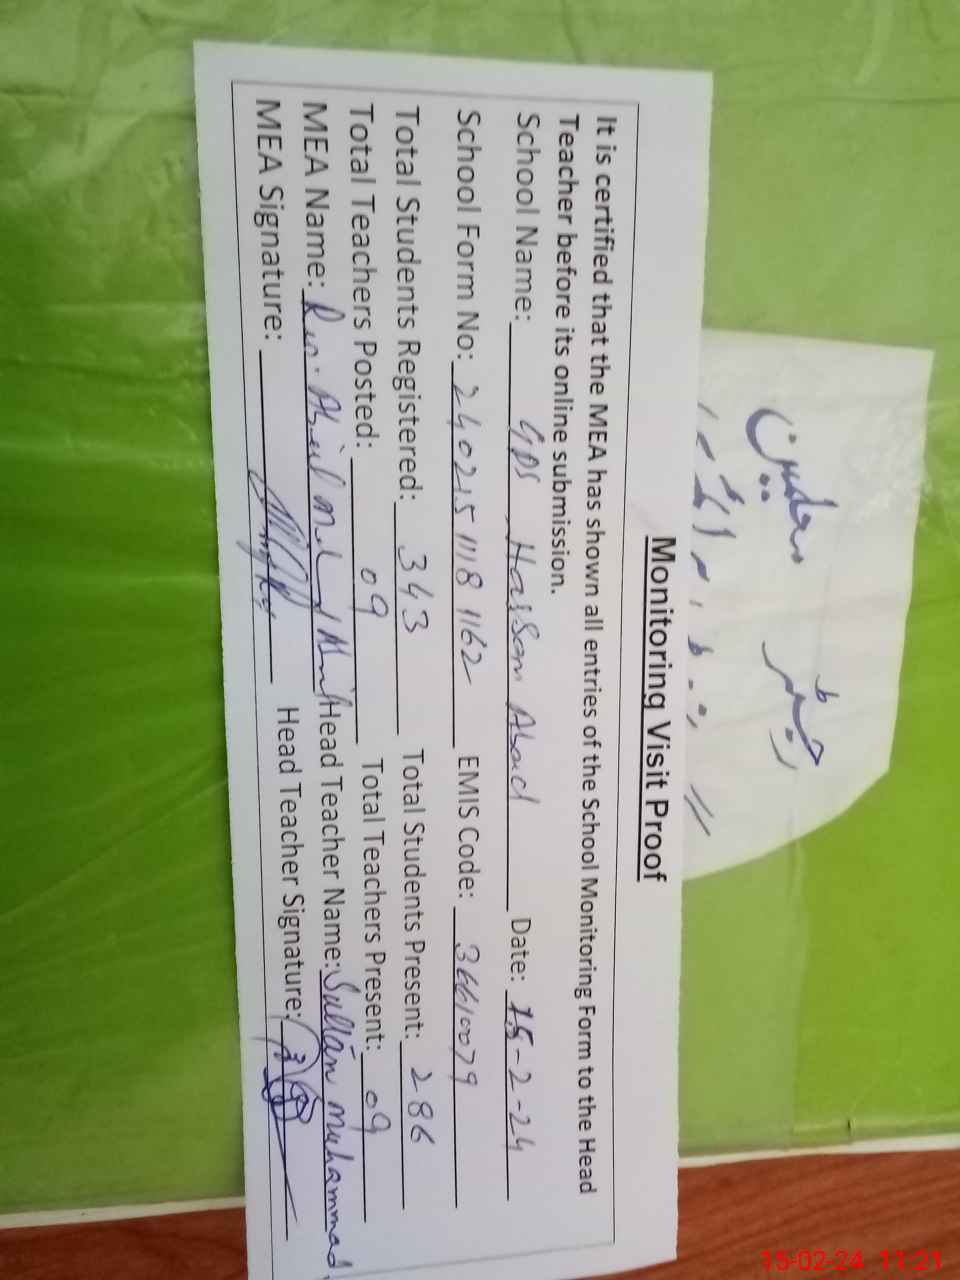 معلمین
رجسٹر
Monitoring Visit Proof
It is certified that the MEA has shown all entries of the School Monitoring Form to the Head
Teacher before its online submission.
School Name: GPS Hassan Abad Date: 15-2-24
School Form No: 2402151118 1162 EMIS Code: 36610079
Total Students Registered: 343 Total Students Present: 286
Total Teachers Posted: 09 Total Teachers Present: 09
MEA Name: Head Teacher Name: Sultan Muhammad
MEA Signature: Head Teacher Signature:
15-02-24 11:21